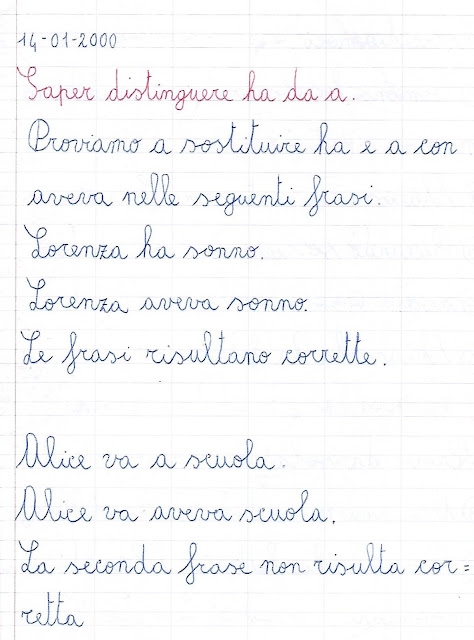 14-01-2000
Saper distinguere ha da a.
Proviamo a sostituire ha e a con
aveva nelle seguenti frasi.
Lorenza ha sonno.
Lorenza aveva sonno.
Le frasi risultano corrette.
Alice va a scuola.
Alice va aveva scuola.
La seconda frase non risulta cor=
retta